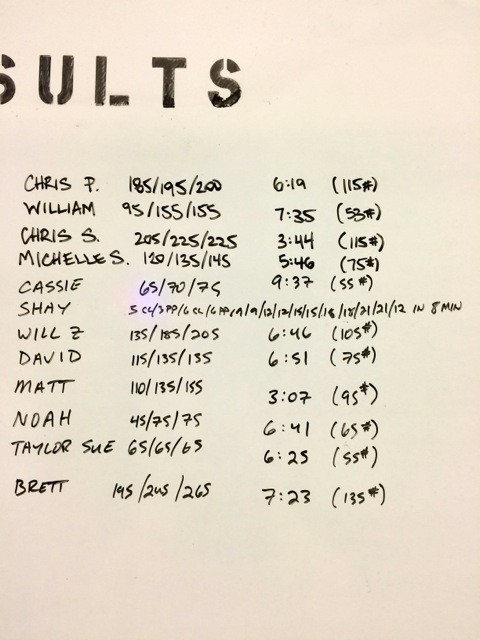 SULTS
CHRIS P. 185/195/200 6:19 (115#)
WILLIAM 95/155/155 7:35 (53#)
CHRIS S. 205/225/225 3:44 (115#)
MICHELLE S. 120/135/145 5:46 (75#)
CASSIE 65/70/75 9:37 (55#)
SHAY 3CC/3PP/6CC/6PP/9/9/12/12/15/15/18/18/21/21/12 IN 8 MIN
WILL Z 135/185/205 6:46 (105#)
DAVID 115/135/135 6:51 (75#)
MATT 110/135/155 3:07 (95#)
NOAH 45/75/75 6:41 (65#)
TAYLOR SUE 65/65/65 6:25 (55#)
BRETT 195/245/265 7:23 (135#)